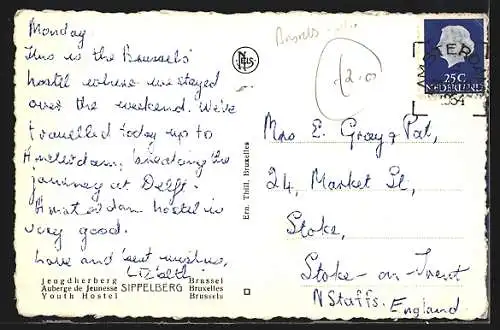 Monday
This is the Brussels'
hostel where we stayed
over the weekend. We've
travelled today up to
Amsterdam, breaking the
journey at Delft.
Amsterdam hostel is
very good.
Love and best wishes,
Lizbeth
Jeugdherberg Brussel
Auberge de Jeunesse SIPPELBERG Bruxelles
Youth Hostel Brussels
NELS
Ern. Thill, Bruxelles
Brussels
£2.0
AMSTERDAM
1954
25 C
NEDERLAND
Mrs E. Gray & Pat,
24, Market St,
Stoke,
Stoke-on-Trent
N Staffs.
England